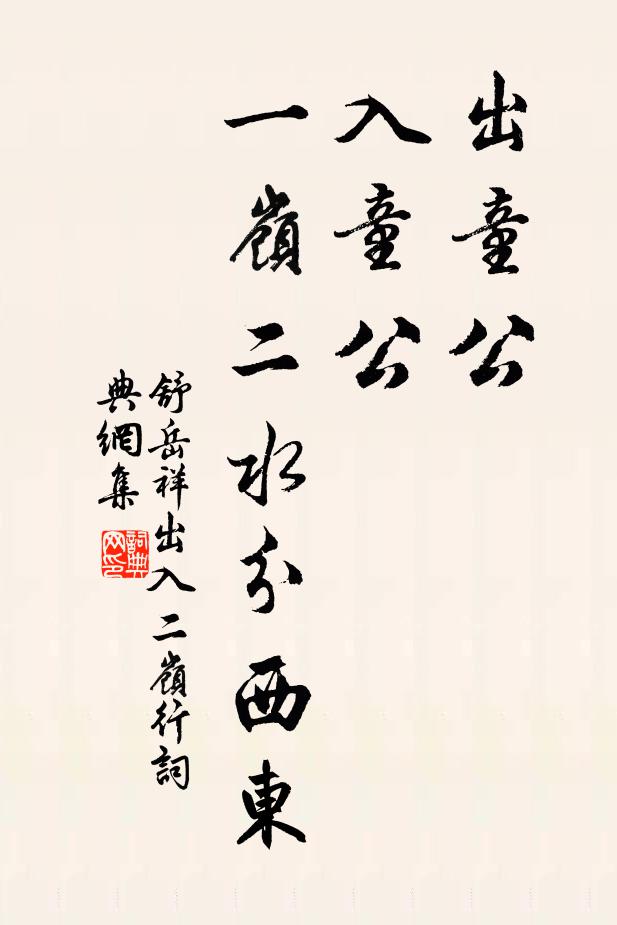 出童公
入童公
一嶺二水分西東
舒岳祥出入二嶺行詞
典網集
詞典
网印